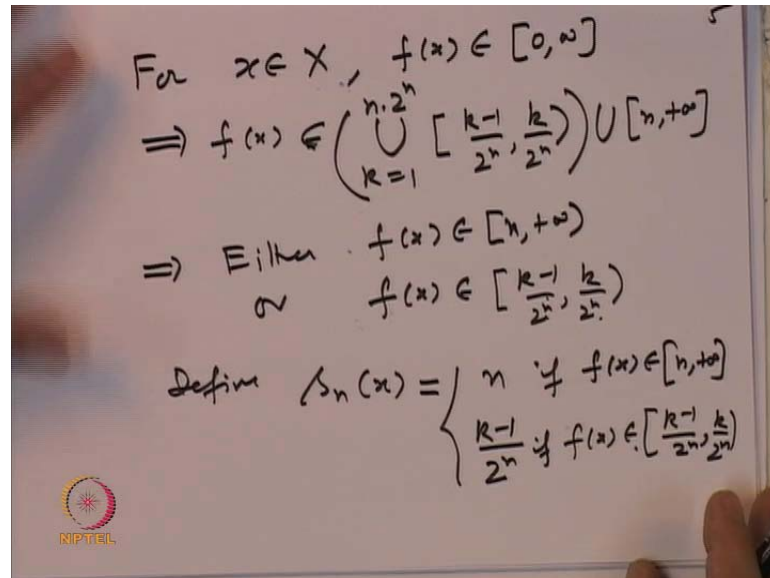 5
For x ∈ X, f(x) ∈ [0, ∞]
⟹ f(x) ∈ ( ⋃_{k=1}^{n·2^n} [ (k-1)/2^n, k/2^n ) ) ∪ [n, +∞]
⟹ Either f(x) ∈ [n, +∞)
or f(x) ∈ [ (k-1)/2^n, k/2^n. )
Define s_n(x) = { n if f(x) ∈ [n, +∞]
(k-1)/2^n if f(x) ∈ [ (k-1)/2^n, k/2^n )
NPTEL